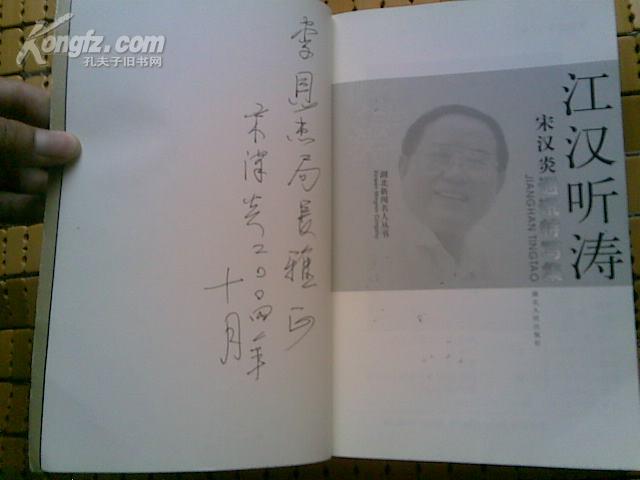 Kongfz.com
孔夫子旧书网
李恩杰局长雅正
宋汉炎二00四年
十月
江汉听涛
宋汉炎
JIANGHAN TINGTAO
湖北新闻名人丛书
湖北人民出版社